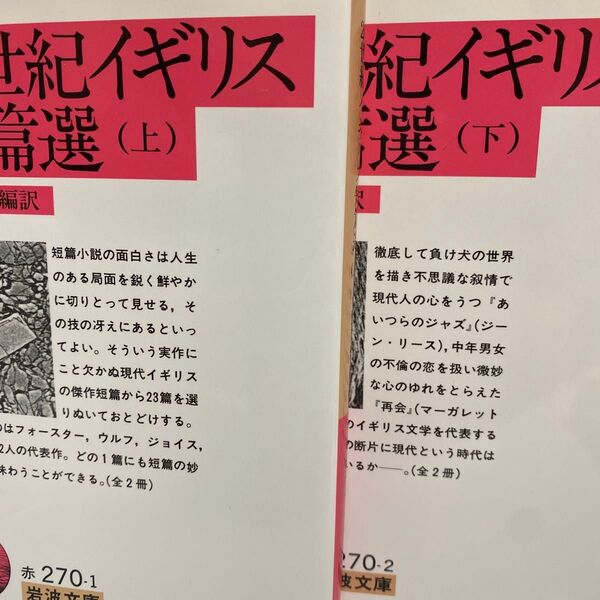 世紀イギリス
篇選(上)
編訳
短篇小説の面白さは人生
のある局面を鋭く鮮やか
に切りとって見せる,そ
の技の冴えにあるといっ
てよい。そういう実作に
こと欠かぬ現代イギリス
の傑作短篇から23篇を選
りぬいておとどけする。
のはフォースター,ウルフ,ジョイス,
2人の代表作。どの1篇にも短篇の妙
味わうことができる。(全2冊)
赤 270-1
岩波文庫
紀イギリス
選(下)
訳
徹底して負け犬の世界
を描き不思議な叙情で
現代人の心をうつ『あ
いつらのジャズ』(ジー
ン・リース),中年男女
の不倫の恋を扱い微妙
な心のゆれをとらえた
『再会』(マーガレット
のイギリス文学を代表する
の断片に現代という時代は
いるか——。(全2冊)
270-2
波文庫